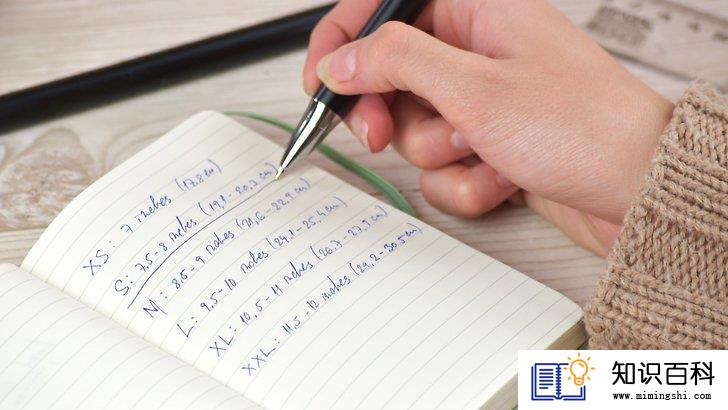 XS: 7 inches (17,8 cm)
S: 7,5-8 inches (19,1-20,3 cm)
M: 8,5-9 inches (21,6-22,9 cm)
L: 9,5-10 inches (24,1-25,4 cm)
XL: 10,5-11 inches (26,7-27,9 cm)
XXL: 11,5-12 inches (29,2-30,5 cm)
知识百科
www.mimingshi.com